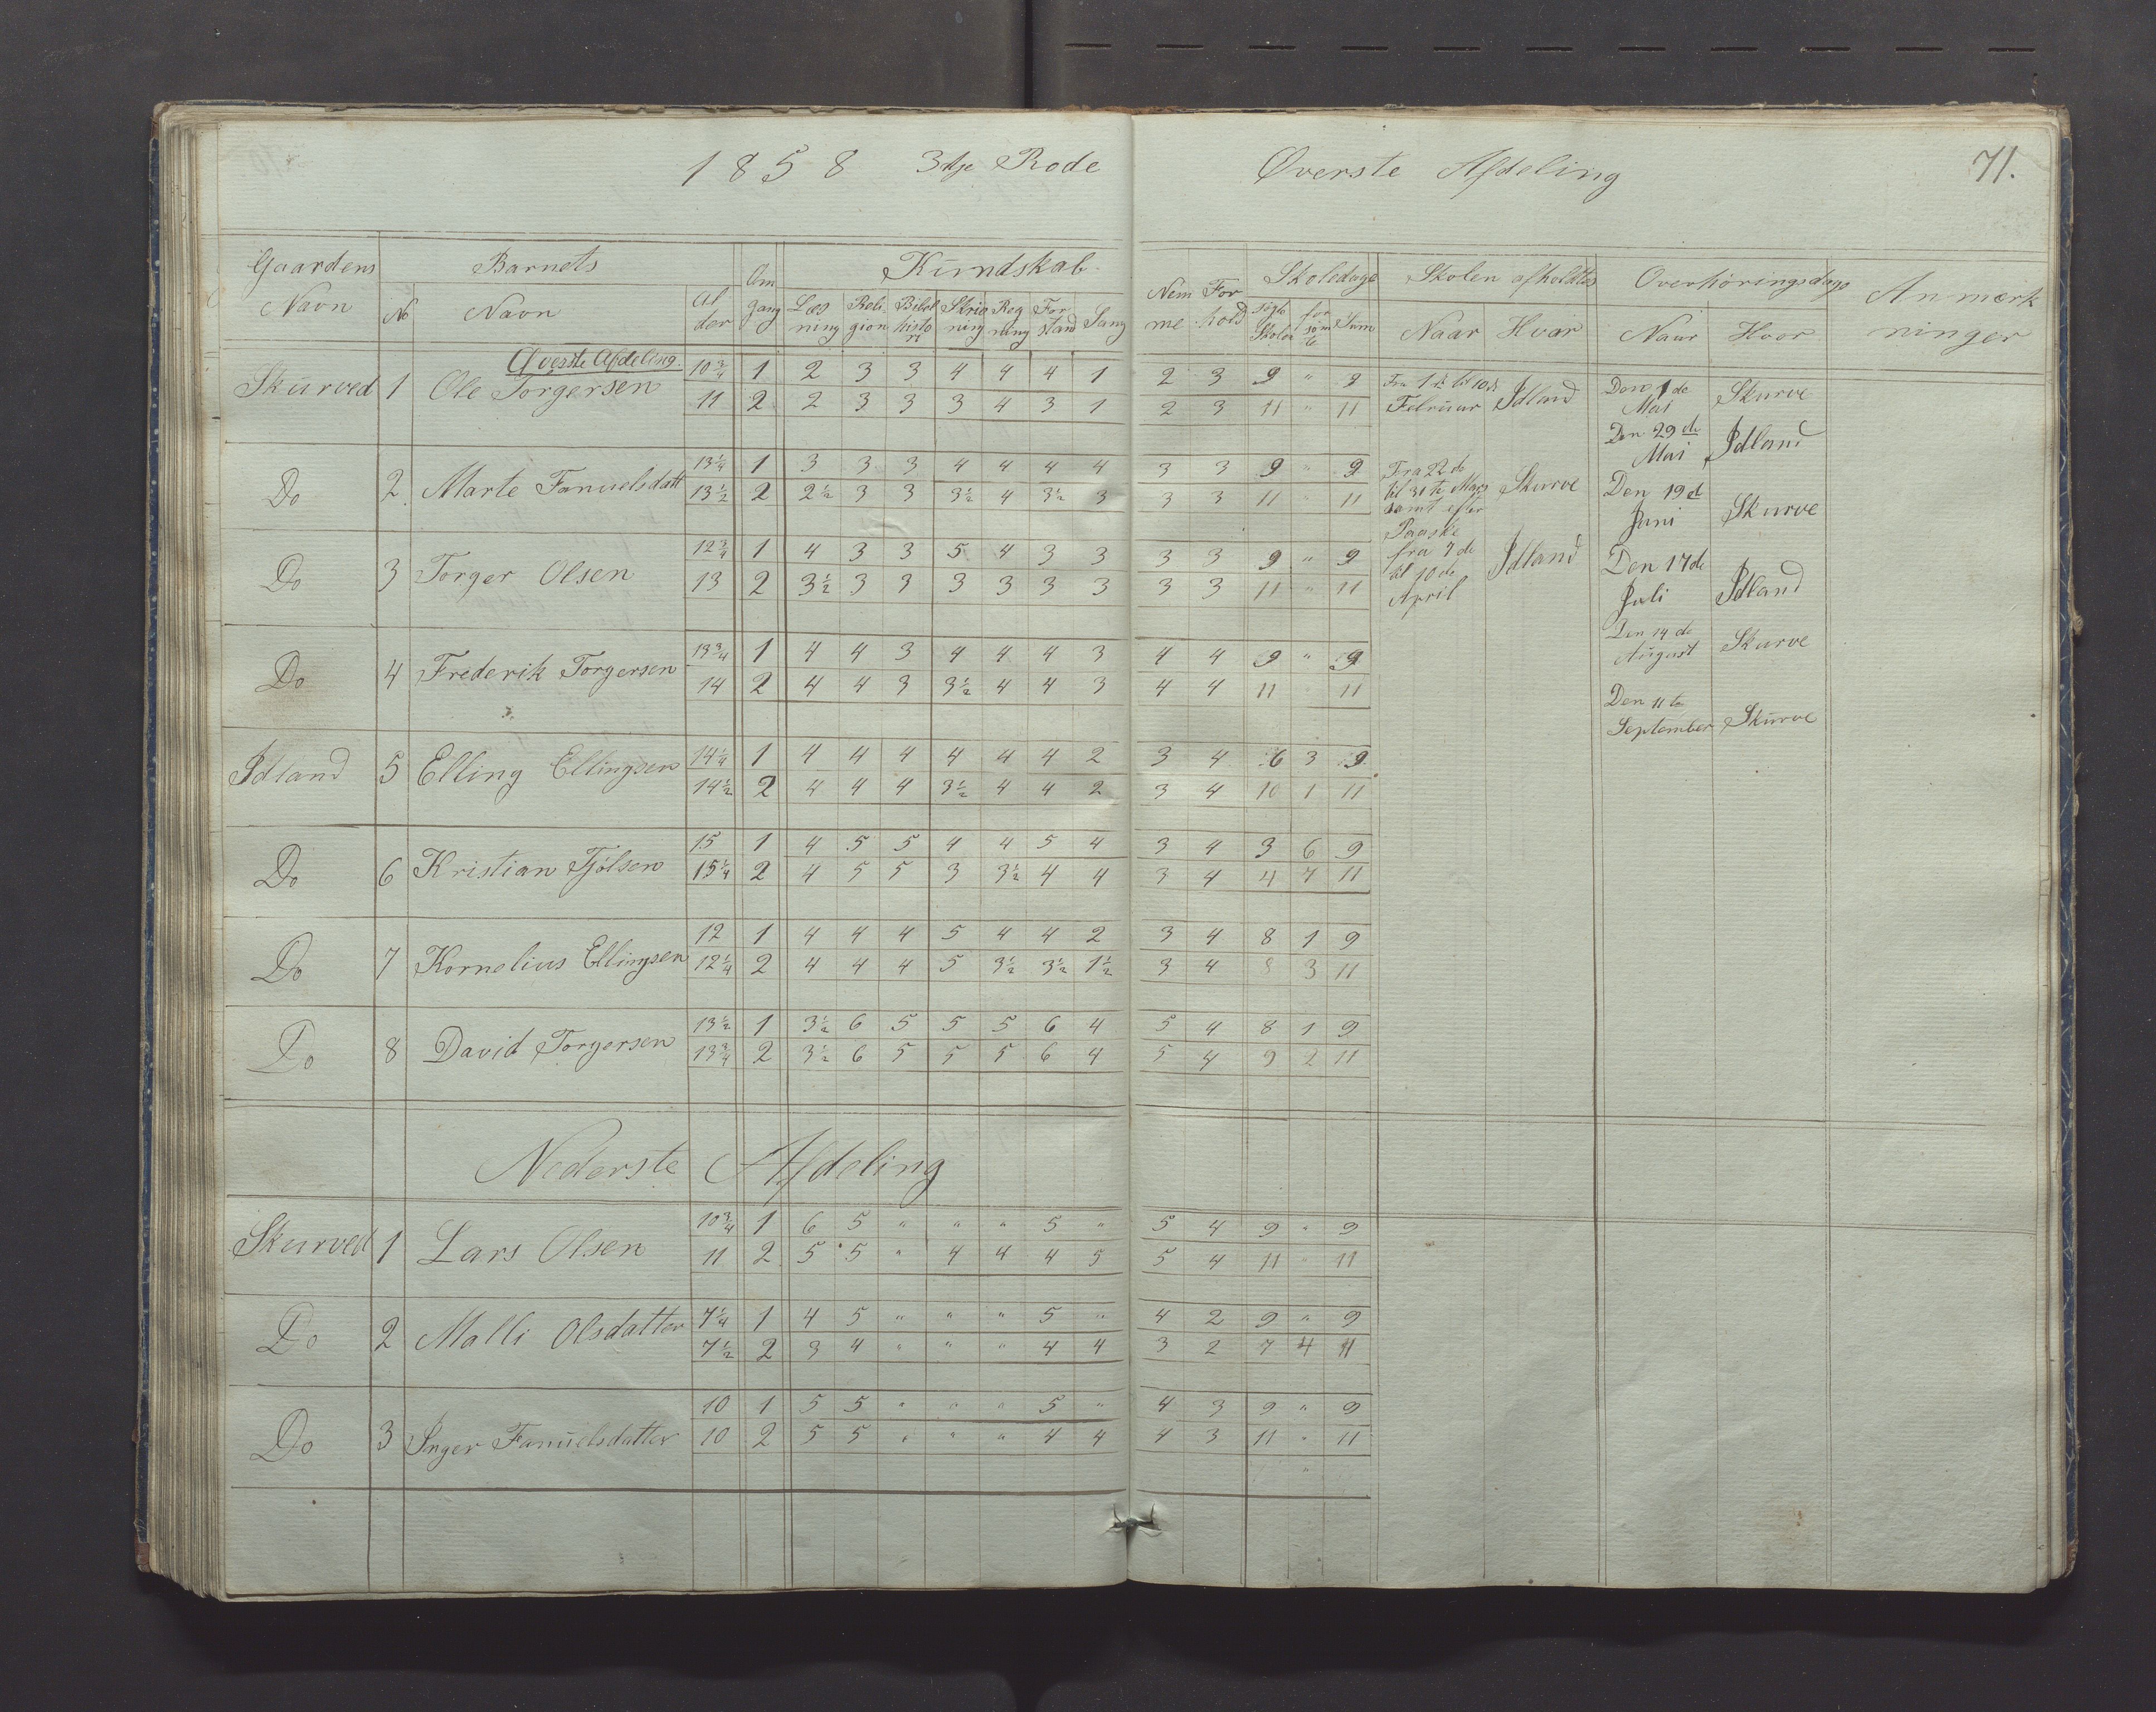 1858 3die Rode Øverste Afdeling 71.
Gaardens Navn | Barnets No Navn Alder | Omgang | Kundskab Læsning Religion Bibelhistori Skrivning Regning Forstand Sang | Nemme | Forhold | Skoledage søgte Skolen forsømte Sum | Skolen afholdtes Naar Hvor | Overhøringsdage Naar Hvor | Anmærkninger
Øverste Afdeling.
Skurved 1 Ole Torgersen 10 3/4 1 2 3 3 4 4 4 1 2 3 9 " 9
11 2 2 3 3 3 4 3 1 2 3 11 " 11
Do 2 Marte Fanuelsdatt 13 1/4 1 3 3 3 4 4 4 4 3 3 9 " 9
13 1/2 2 2 1/2 3 3 3 1/2 4 3 1/2 3 3 3 11 " 11
Do 3 Torger Olsen 12 3/4 1 4 3 3 5 4 3 3 3 3 9 " 9
13 2 3 1/2 3 3 3 3 3 3 3 3 11 " 11
Do 4 Frederik Torgersen 13 3/4 1 4 4 3 4 4 4 3 4 4 9 " 9
14 2 4 4 3 3 1/2 4 4 3 4 4 11 11
Idland 5 Elling Ellingsen 14 1/4 1 4 4 4 4 4 4 2 3 4 6 3 9
14 1/2 2 4 4 4 3 1/2 4 4 2 3 4 10 1 11
Do 6 Kristian Tjølsen 15 1 4 5 5 4 4 5 4 3 4 3 6 9
15 1/4 2 4 5 5 3 3 1/2 4 4 3 4 4 7 11
Do 7 Kornelius Ellingsen 12 1 4 4 4 5 4 4 2 3 4 8 1 9
12 1/4 2 4 4 4 5 3 1/2 3 1/2 1 1/2 3 4 8 3 11
Do 8 David Torgersen 13 1/2 1 3 1/2 6 5 5 5 6 4 5 4 8 1 9
13 3/4 2 3 1/2 6 5 5 5 6 4 5 4 9 2 11
Fra 1ste til 10de
Februar Idland
Fra 22de
til 31te Mars Skurve
samt efter
Paaske
fra 7de
til 10de Idland
April
Den 1de
Mai Skurve
Den 29de
Mai Idland
Den 19d
Juni Skurve
Den 17de
Juli Idland
Den 14de
August Skurve
Den 11te
September Skurve
Nederste Afdeling
Skurved 1 Lars Olsen 10 3/4 1 6 5 " " " 5 " 5 4 9 " 9
11 2 5 5 " 4 4 4 5 5 4 11 " 11
Do 2 Malli Olsdatter 7 1/4 1 4 5 " " " 5 " 4 2 9 " 9
7 1/2 2 3 4 " " " 4 4 3 2 7 4 11
Do 3 Inger Fanuelsdatter 10 1 5 5 " " " 5 " 4 3 9 " 9
10 2 5 5 " " " 4 4 4 3 11 " 11
"